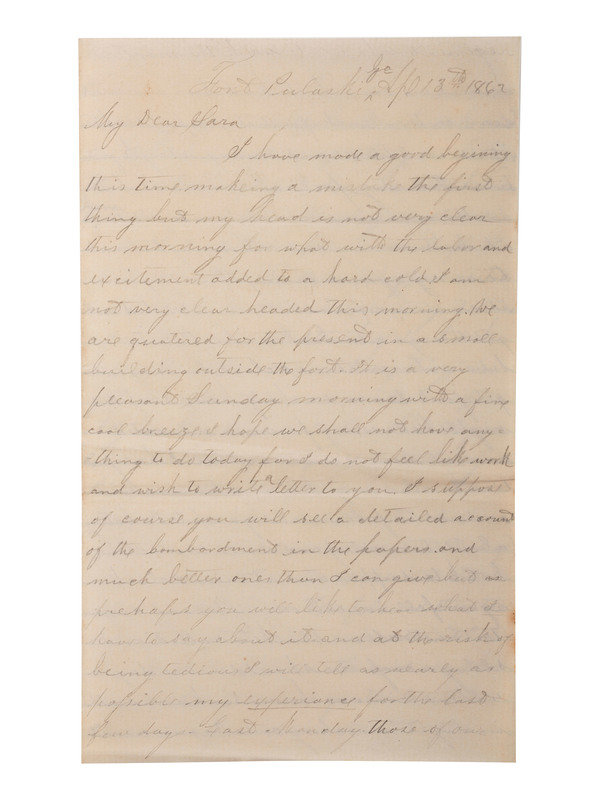 Fort Pulaski Ga Apl 13th 1862
My Dear Sara
I have made a good begining
this time makeing a mistake the first
thing but my head is not very clear
this morning for what with the labor and
excitement added to a hard cold I am
not very clear headed this morning. We
are quatered for the present in a small
building outside the fort. It is a very
pleasant Sunday morning with a fine
cool breeze I hope we shall not have any-
-thing to do today for I do not feel like work
and wish to write a letter to you. I suppose
of course you will see a detailed account
of the bombardment in the papers and
much better ones than I can give but as
prehaps you will like to hear what I
have to say about it and at the risk of
being tedious I will tell as nearly as
possible my experience for the last
few days. Last Monday those of our